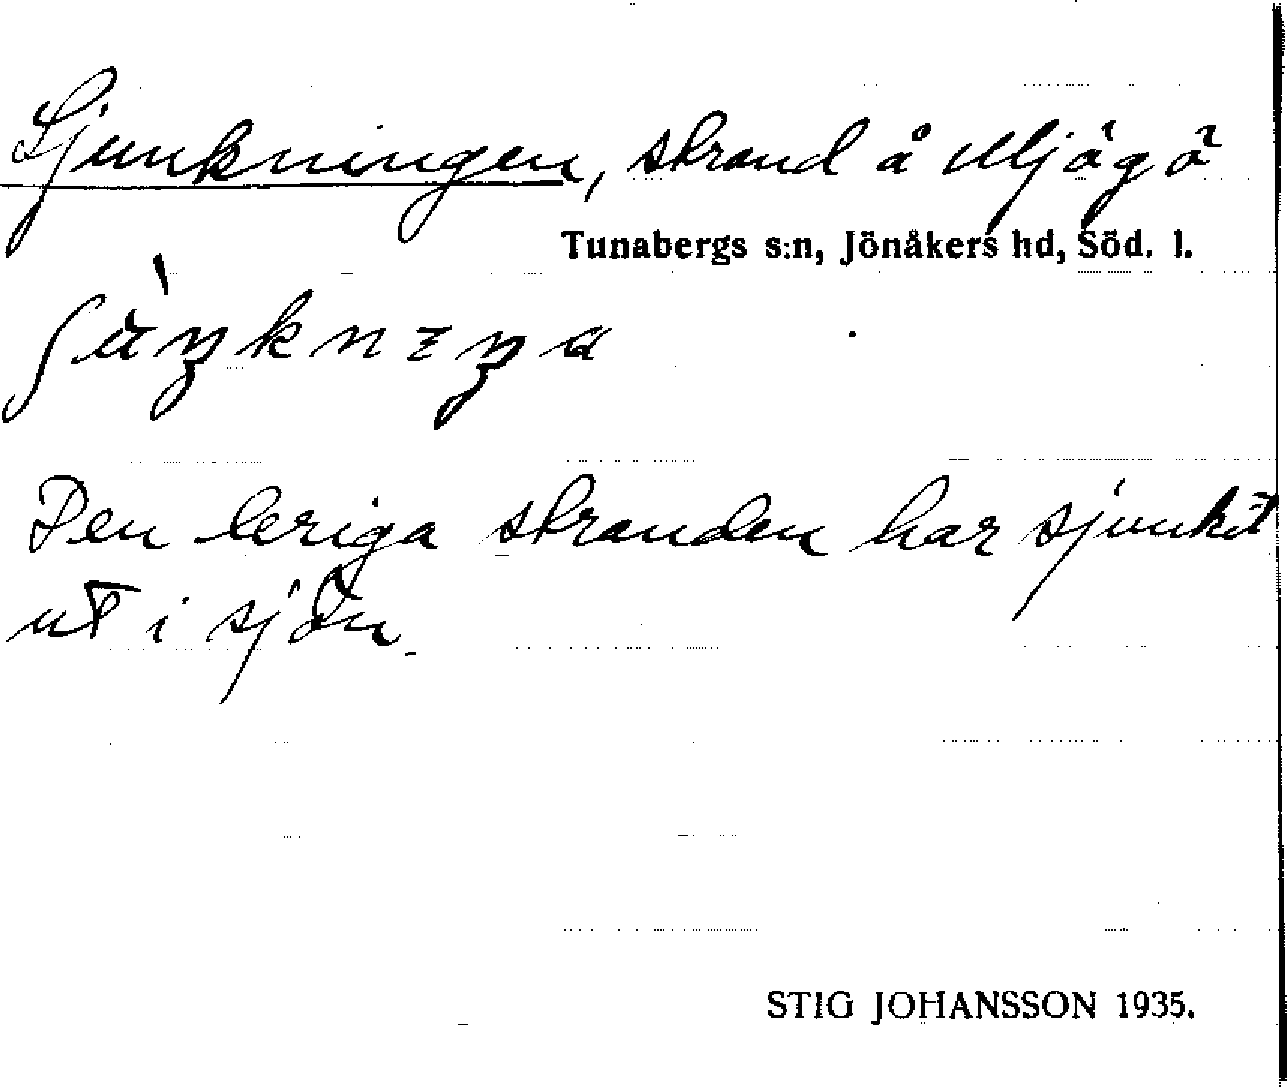 Sjunkningen, strand å Mjågö
Tunabergs s:n, Jönåkers hd, Söd. l.
Den leriga stranden har sjunkit
ut i sjön.
STIG JOHANSSON 1935.